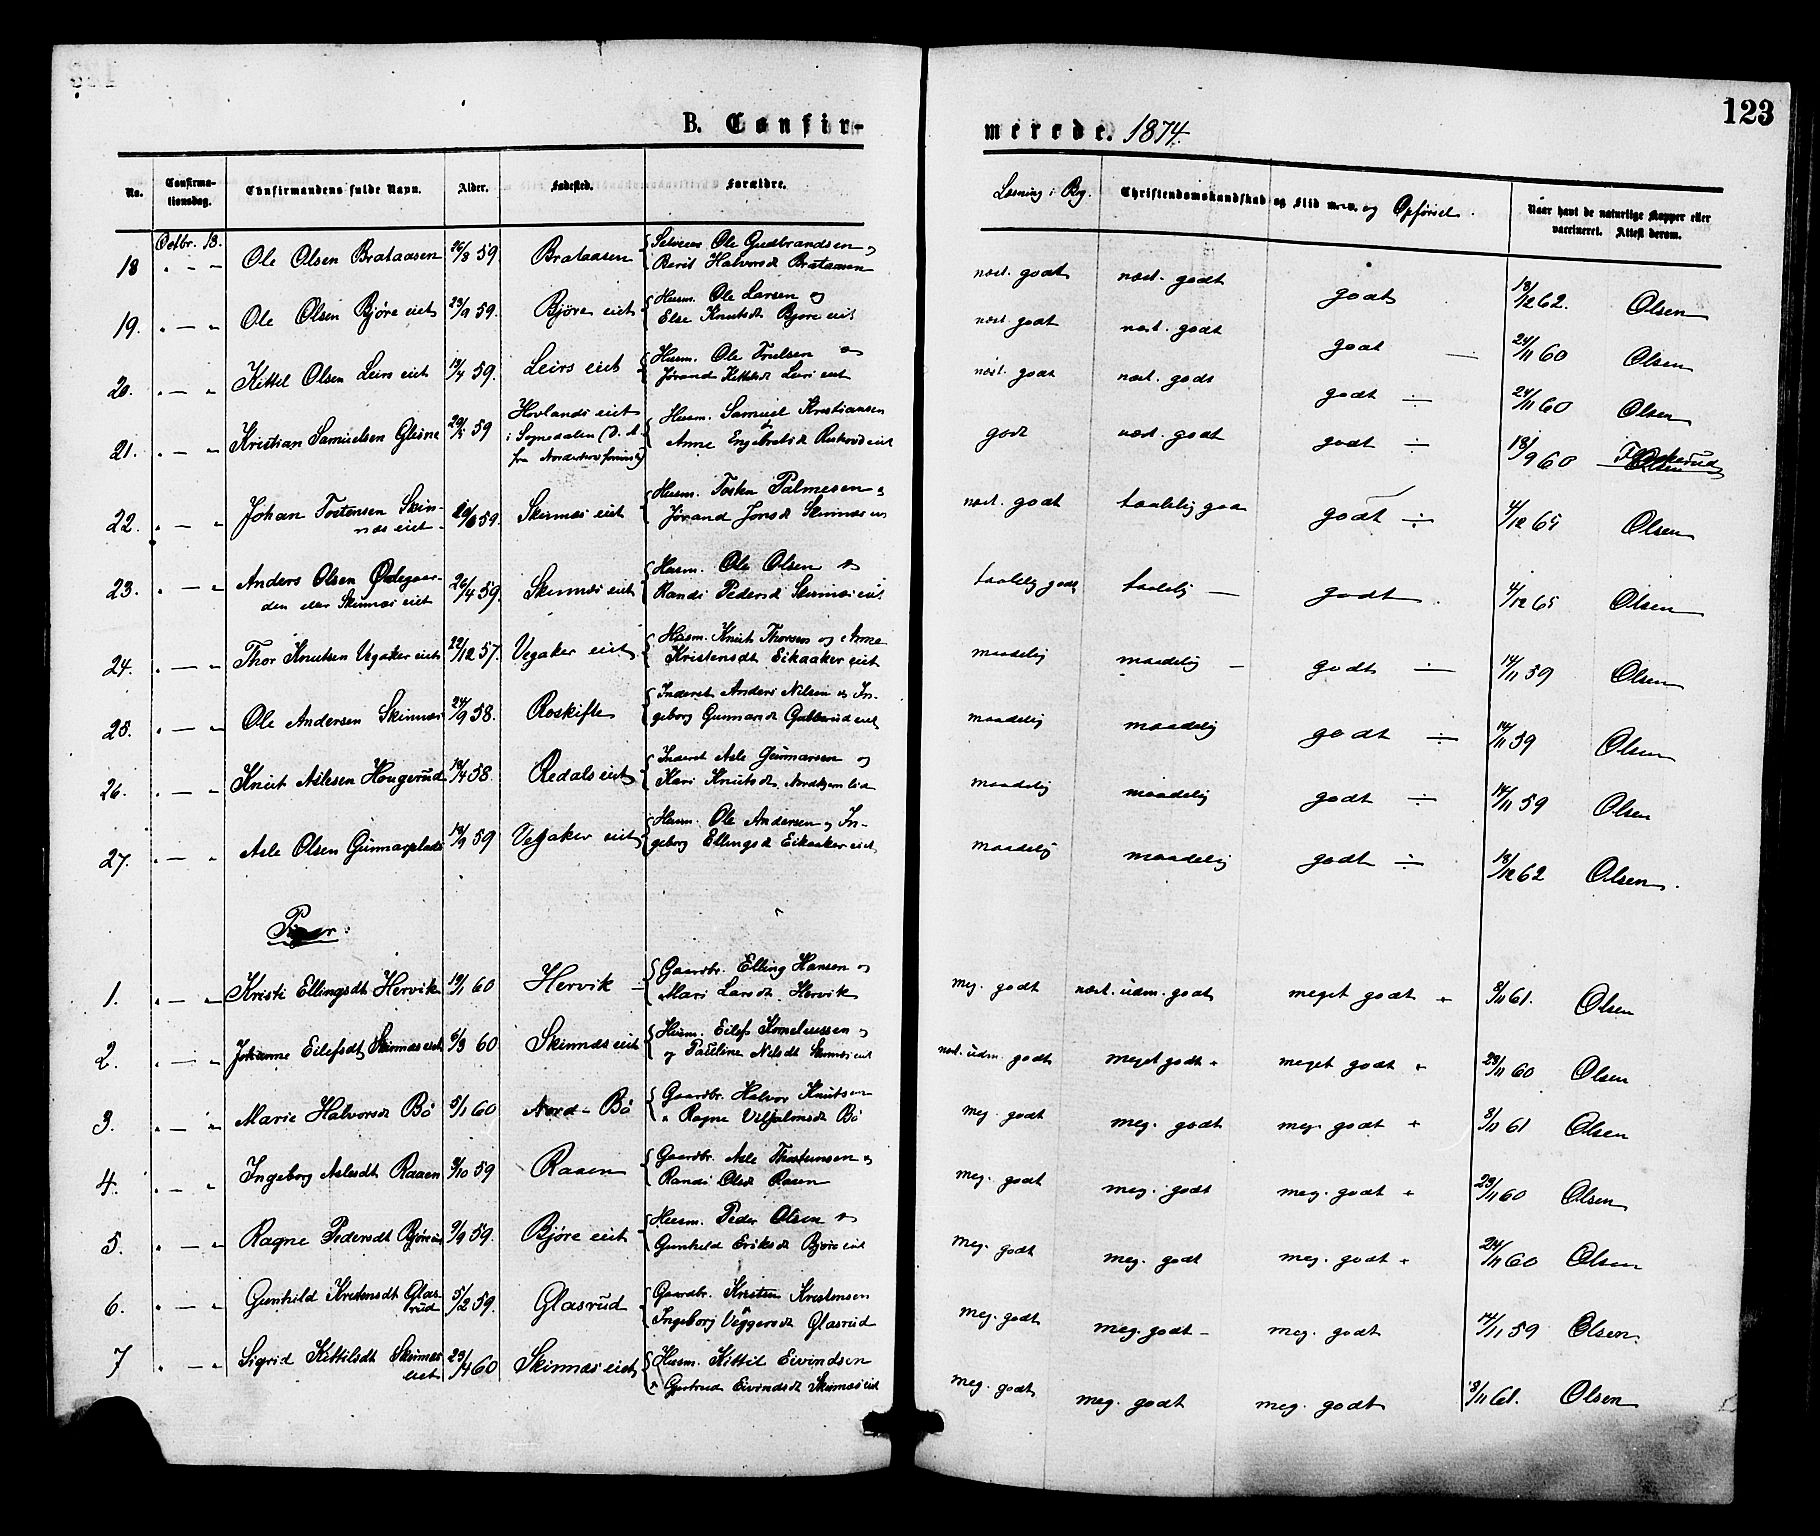 123
B. Confir-
merede. 1874.
No.
Confirma-
tionsdag.
Confirmandens fulde Navn.
Alder.
Fødested.
Forældre.
Læsning i Bog.
Christendomskundskab og Flid m.v. og Opførsel.
Naar havt de naturlige Kopper eller
vaccineret. Attest derom.
Octbr. 18.
18 " — " Ole Olsen Brataasen 26/8 59 Brataasen Selveier Ole Gudbrandsen og
Berit Halvorsdt Brataasen næst. godt næst. godt godt 18/12 62. Olsen
19. " — " Ole Olsen Bjøre eiet 23/9 59. Bjøre eiet Husm. Ole Larsen og
Else Knutsdt Bjøre eiet næst. godt næst. godt godt — 24/11 60 Olsen
20. " — " Kittil Olsen Leirs eiet 19/4 59. Leirs eiet Husm. Ole Truelsen og
Jørand Kittilsdt Leirs eiet næst. godt næst. godt godt ÷ 24/11 60 Olsen
21. " — " Kristian Samuelsen Glesne 59 Hovlands eiet
i Sognedalen
fra Norderhov
Husm. Samuel Kristiansen
Anne Engebretsdt godt næst. godt godt ÷ 18/9 60
22. " — " Johan Tostensen Skin-
næs eiet 59. Skinnæs eiet Husm. Tosten Palmesen og
Jørand Jonsdt Skinnæs næst. godt taalelig godt godt ÷ 4/12 65 Olsen
23. " — " Anders Olsen Ødegaar-
den eller Skinnæs eiet 26/4 59. Skinnæs eiet Husm. Ole Olsen og
Randi Pedersd Skinnæs eiet taalelig godt taalelig — godt 4/12 65 Olsen
24. " — " Thor Knutsen Vegaker eiet 22/12 57. Vegaker eiet Husm. Knut Thorsen og Anne
Kristensdt Eikaaker eiet maadelig maadelig — godt — 14/11 59 Olsen
25. " — " Ole Andersen Skinnæs 24/9 58. Roskifte Inderst Anders Nilsen og In-
geborg Gunnarsdt Gubberud eiet maadelig maadelig godt ÷ 14/11 59 Olsen
26. " — " Knut Aslesen Haugerud 19/4 58. Redals eiet Inderst Asle Gunnarsen og
Kari Knutsdt. maadelig maadelig godt ÷ 14/11 59 Olsen
27. " — " Asle Olsen Gunnarplads 19/9 59 Vegaker eiet Husm. Ole Andersen og In-
geborg Ellingsd Eikaaker eiet maadelig maadelig godt ÷ 18/12 62 Olsen.
Piger
1. " — " Kristi Ellingsdt Hervik 19/1 60 Hervik Gaardbr. Elling Hansen og
Mari Larsdt. Hervik meg. godt næst. udm. godt meget godt + 3/11 61. Olsen
2. " — " Johanne Eilefsdt Skinnæs eiet 6/3 60 Skinnæs eiet Husm. Eilef Korneliussen
og Pauline Nilsdt Skinnæs eiet næst. udm. godt meget godt + meget godt + 23/11 60 Olsen
3. " — " Marie Halvorsdt Bö 5/1 60 Nord-Bö Gaardbr. Halvor Knutsen
" Ragne Vilhjalmsdt Bö meg. godt meg. godt meg. godt + 3/11 61 Olsen
4. " — " Ingeborg Aslesdt Raaen 9/10 59 Raaen Gaardbr. Asle Thostensen og
Randi Olsdt Raaen meg. godt meg. godt meg. godt + 23/11 60 Olsen
5. " — " Ragne Pedersdt Bjøre eiet 9/9 59. Bjøre eiet Husm. Peder Olsen og
Gunhild Eriksdt Bjøre eiet meg. godt meg. godt meg. godt + 24/11 60 Olsen
6. " — " Gunhild Kristensdt Glas-
rud 5/2 59. Glasrud Gaardbr. Kristen Kristensen
Ingeborg Viggersdt Glasrud meg. godt meg. godt — meg. godt 14/11 59 Olsen.
7 " — " Sigrid Kittilsdt Skinnæs
eiet 23/4 60 Skinnæs eiet Husm. Kittil Eivindsen
" Gjertrud Eivindsdt Skinnæs eiet meg. godt meg. godt meg. godt 3/11 61. Olsen